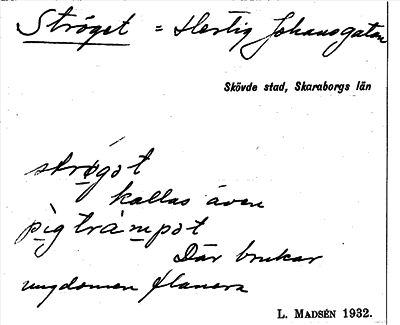 Ströget = Hertig Johansgatan
Skövde stad, Skaraborgs län
strø̀gət
kallas även
pìgtràmpət
Där brukar
ungdomen flanera
L. MADSÉN 1932.